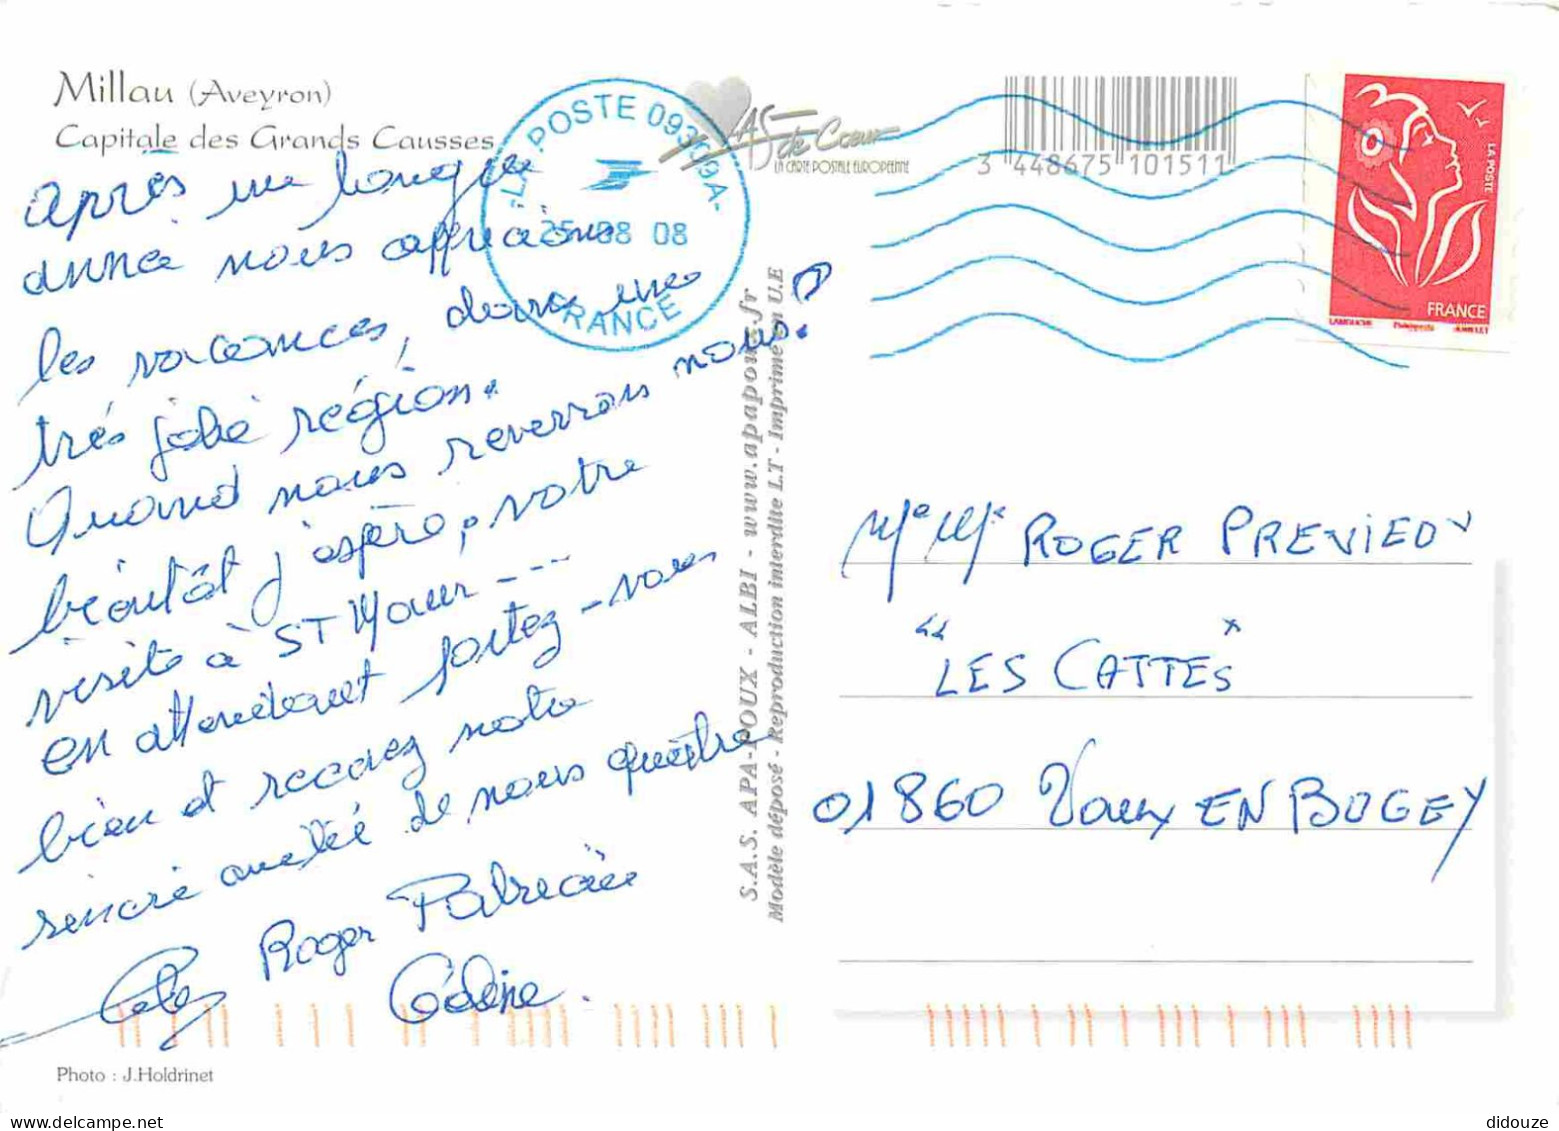 Millau (Aveyron)
Capitale des Grands Causses
après une longue
année nous apprécions
les vacances, dans une
très jolie région.
Quand nous reverrons nous?
bientôt j'espère, votre
visite à ST Maur ---
en attendant portez-vous
bien et recevez notre
sincère amitié de nous quatre
Roger Patricia
Céline.
Photo : J.Holdrinet
LA POSTE 09309A
25-08 08
FRANCE
AS de Cœur
LA CARTE POSTALE EUROPEENNE
3 448675 101511
LA POSTE
FRANCE
S.A.S. APA-POUX - ALBI - www.apapoux.fr
Modèle déposé - Reproduction interdite L.T - Imprimé en U.E
Me Mr ROGER PREVIEU
"LES CATTES"
01860 Vaux EN BUGEY
didouze